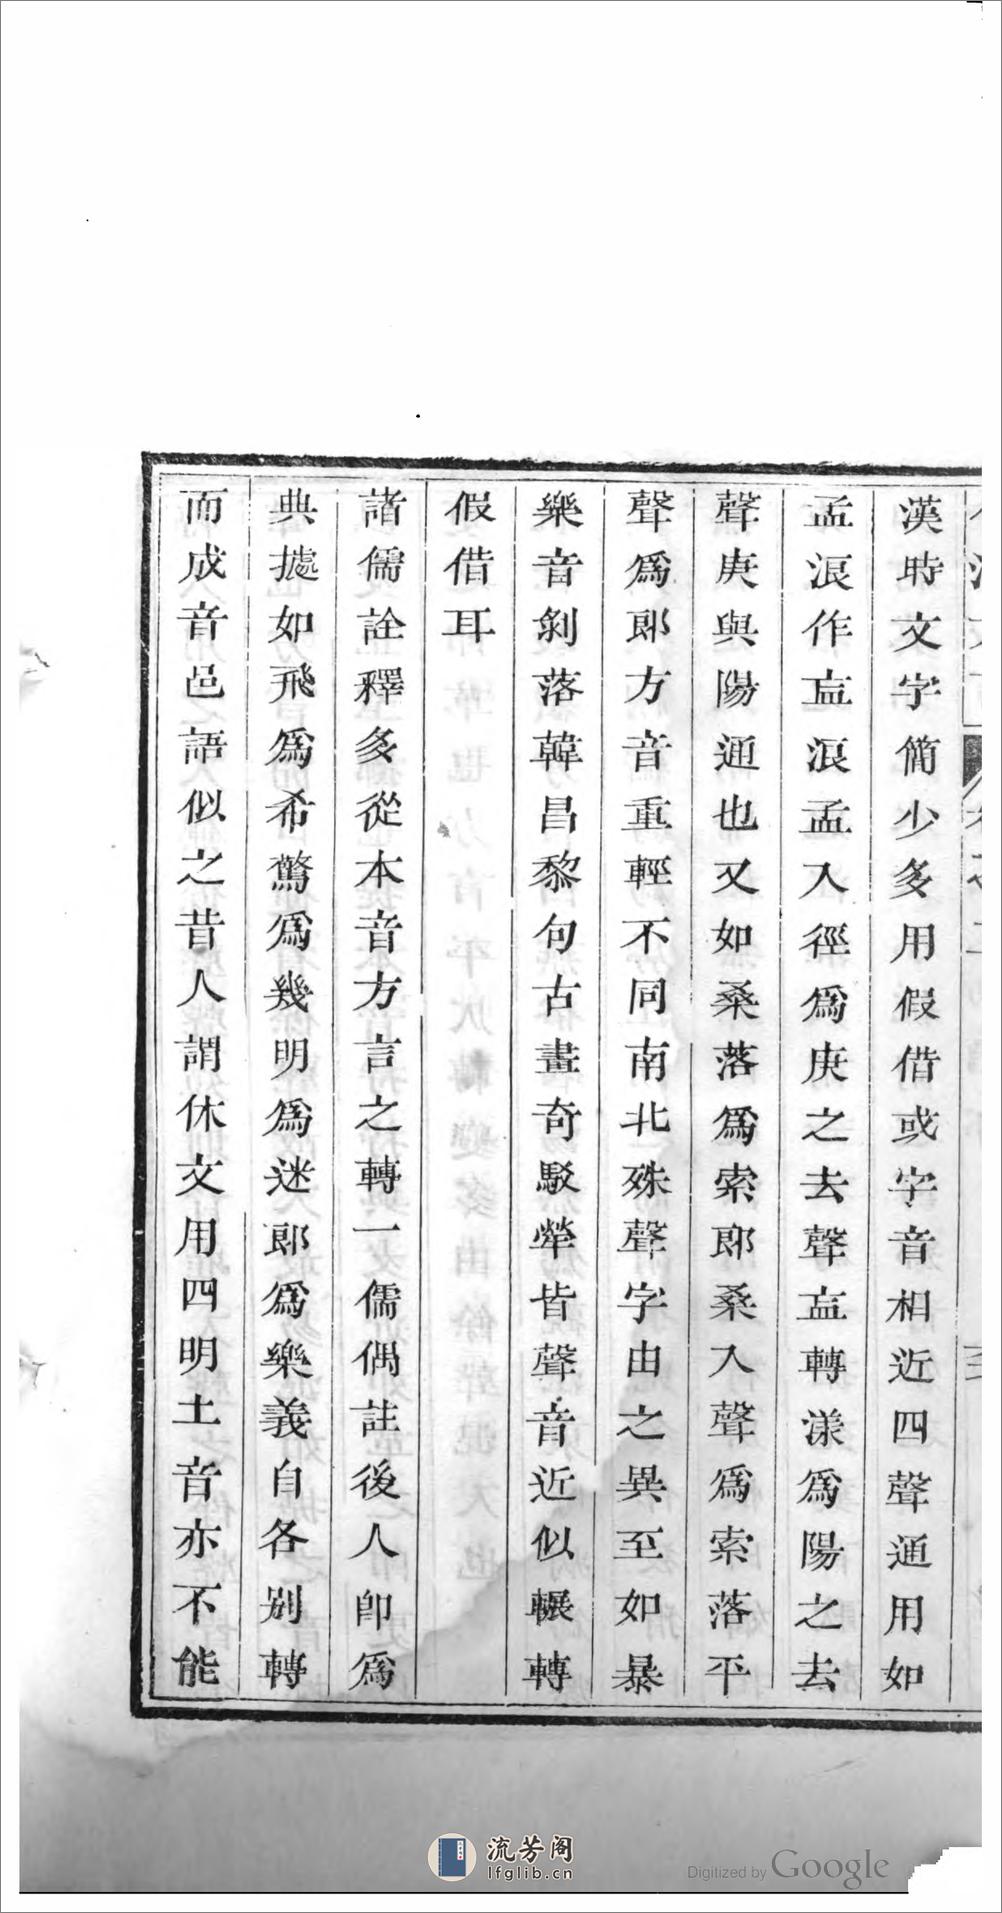 漢時文字簡少多用假借或字音相近四聲通用如
孟浪作盲浪孟入徑爲庚之去聲盲轉漾爲陽之去
聲庚與陽通也又如桑落爲索郎桑入聲爲索落平
聲爲郎方音重輕不同南北殊聲字由之異至如暴
樂音剝落韓昌黎句古畫奇駁犖皆聲音近似輾轉
假借耳
諸儒詮釋多從本音方言之轉一儒偶註後人卽爲
典據如飛爲希驚爲幾明爲迷郎爲樂義自各別轉
而成音邑語似之昔人謂休文用四明土音亦不能
流芳阁
lfglib.cn
Digitized by Google